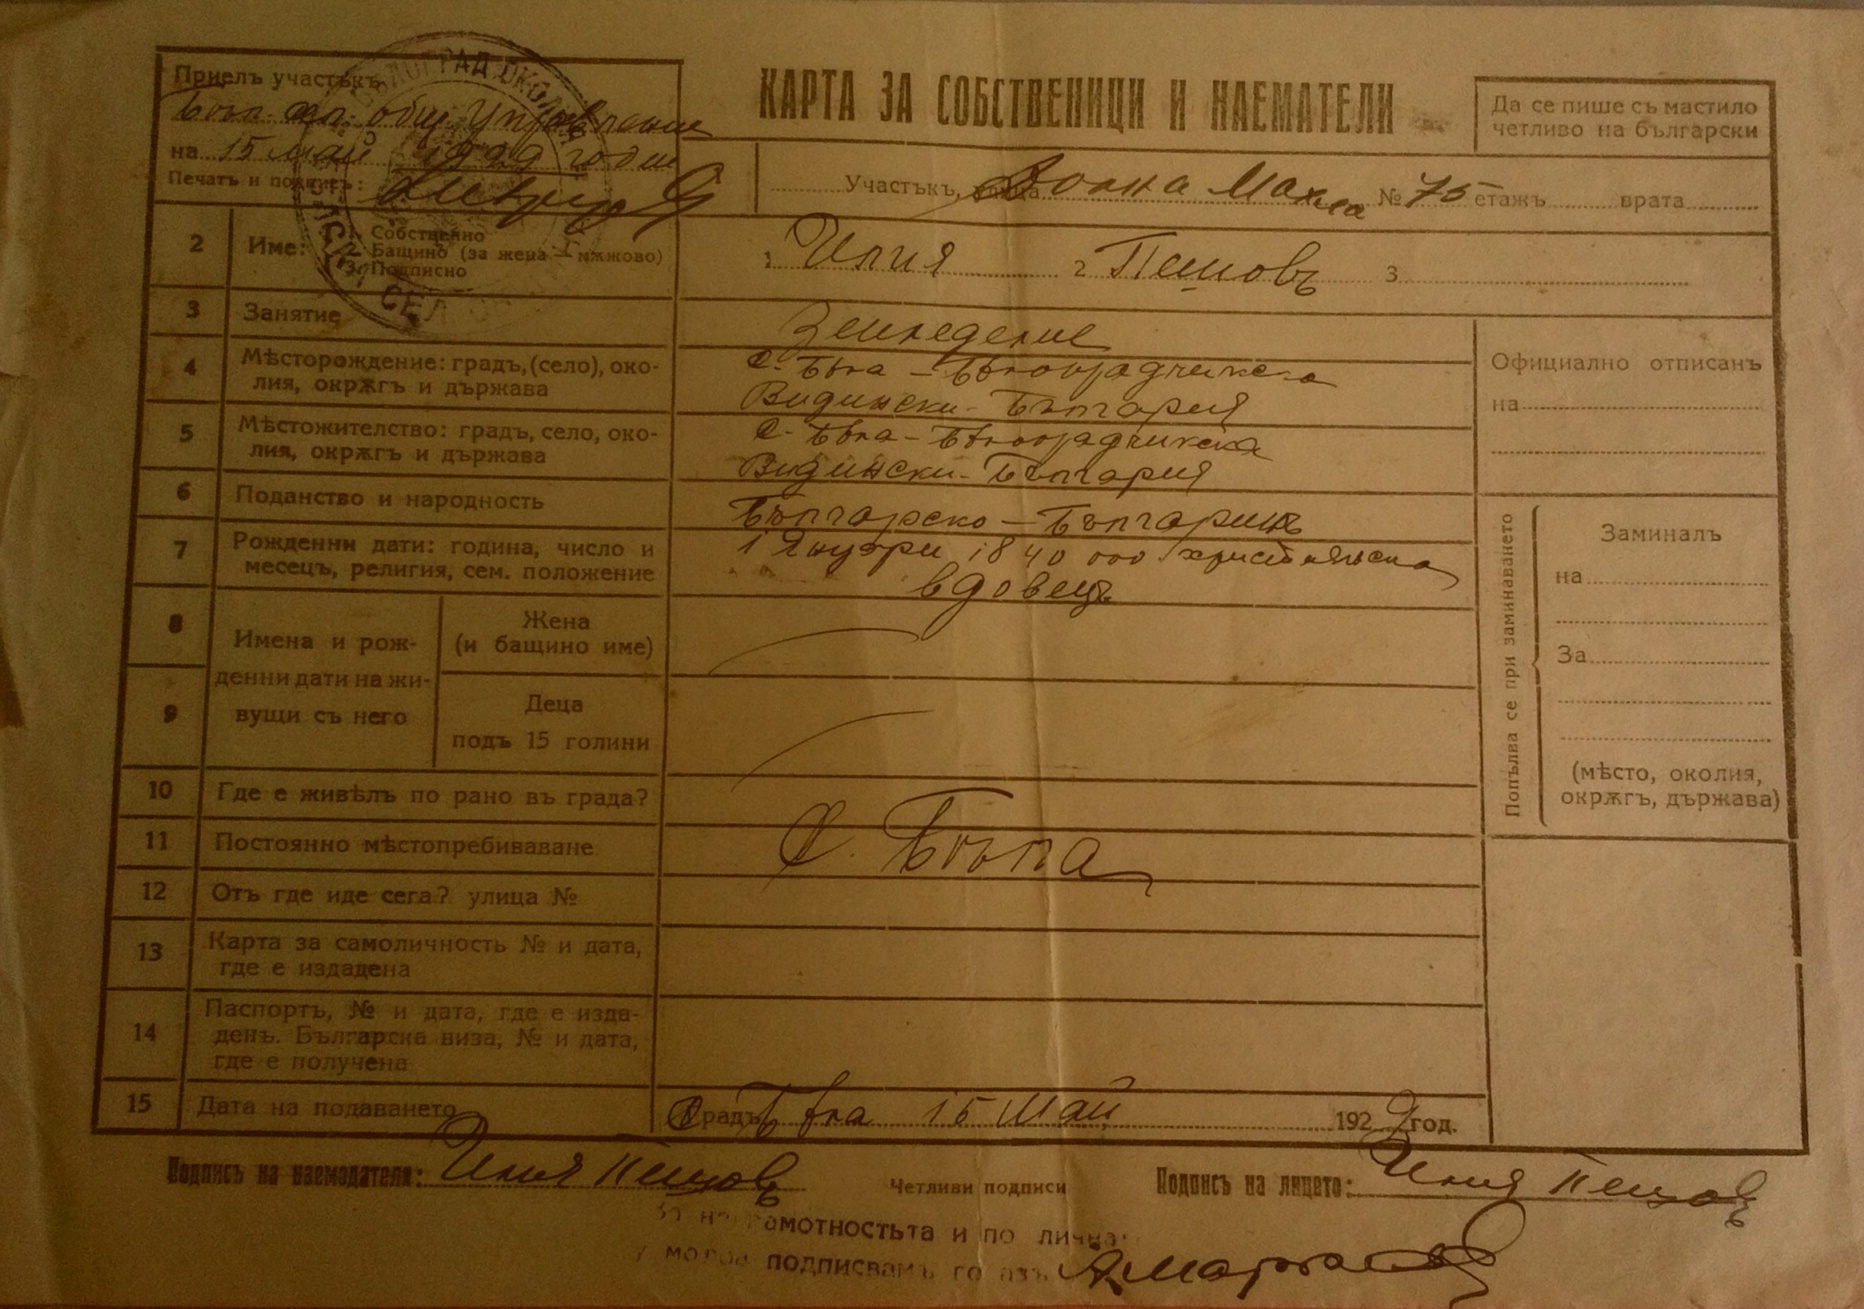 Приелъ участъкъ
общ. управление
на 15 май 1929 годин
Печатъ и подписъ:
КАРТА ЗА СОБСТВЕНИЦИ И НАЕМАТЕЛИ
Да се пише съ мастило
четливо на български
Участъкъ, улица Долна Махла № 75 етажъ врата
2 Име: 1. Собствено
2. Бащино (за жена — мѫжово)
3. Подписно
1 Илия 2 Пешовъ 3
3 Занятие Земледелие
4 Мѣсторождение: градъ, (село), око-
лия, окрѫгъ и държава
с. Бѣла - Бѣлоградчикска
Видински - България
5 Мѣстожителство: градъ, село, око-
лия, окрѫгъ и държава
с. Бѣла - Бѣлоградчикска
Видински - България
6 Поданство и народность Българско - Българинъ
7 Рожденни дати: година, число и
месецъ, религия, сем. положение
1 Януари 1840 християнска
вдовецъ
8 Жена
(и бащино име)
Имена и рож-
денни дати на жи-
вущи съ него
9 Деца
подъ 15 голини
10 Где е живѣлъ по рано въ града?
11 Постоянно мѣстопребиваване с. Бѣла
12 Отъ где иде сега? улица №
13 Карта за самоличность № и дата,
где е издадена
14 Паспортъ, № и дата, где е изда-
денъ. Българска виза, № и дата,
где е получена
15 Дата на подаването Градъ Бѣла 15 Май 1929 год.
Официално отписанъ
на
Попълва се при заминаването
Заминалъ
на
За
(мѣсто, околия,
окрѫгъ, държава)
Подпись на наемодателя: Илия Пешовъ
Четливи подписи
Подпись на лицето: Илия Пешовъ
За неграмотностьта и по лична
молба подписвамъ го азъ